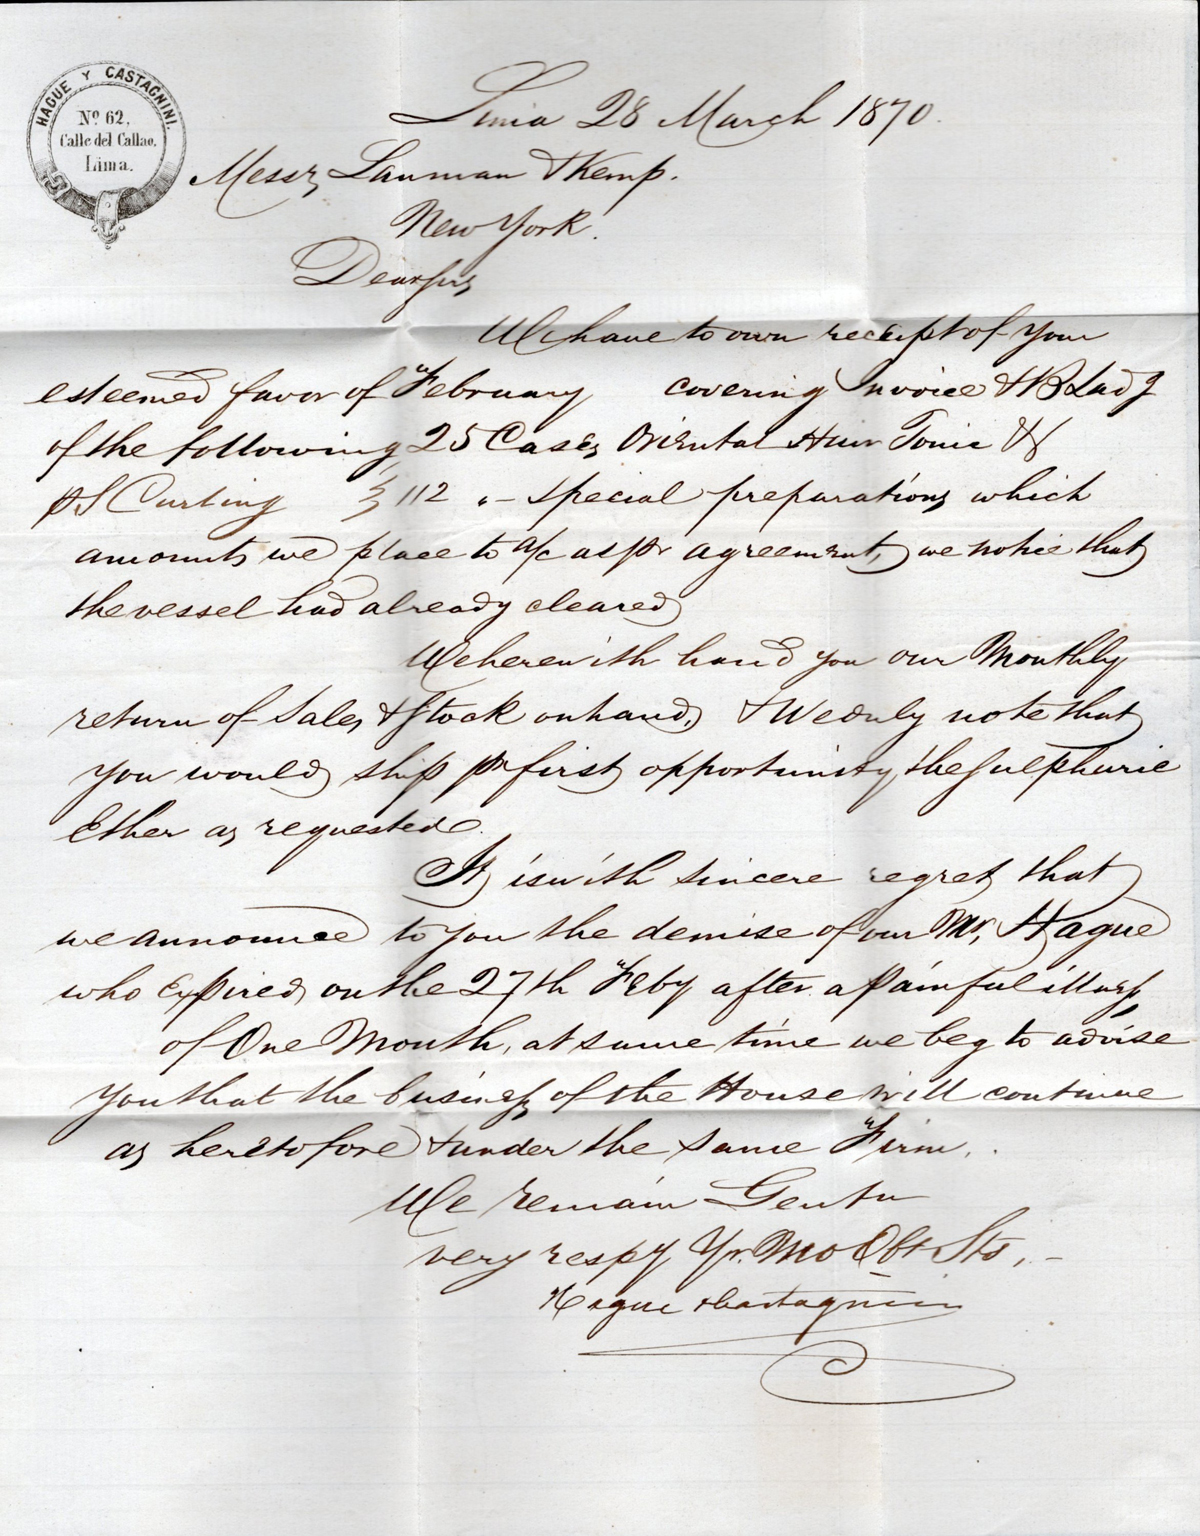 HAGUE Y CASTAGNINI.
Nº 62,
Calle del Callao.
Lima.
Lima 28 March 1870.
Messrs Lanman & Kemp.
New York.
Dear Sirs
We have to own receipt of your
esteemed favor of February covering Invoice & B Ladg
of the following 25 Cases Oriental Hair Tonic &
pS Curling 112 " special preparations which
amounts we place to a/c as pr agreement, we notice that
the vessel had already cleared
We herewith hand you our Monthly
return of Sales & Stock on hand, & We duly note that
you would ship pr first opportunity the Sulphuric
Ether as requested.
It is with sincere regret that
we announce to you the demise of our Mr. Hague
who expired on the 27th Feby after a painful illness
of One Month, at same time we beg to advise
you that the business of the House will continue
as heretofore & under the same Firm.
We remain Gentn
very respy Yr. Mo Obt Sts, -
Hague & Castagnini